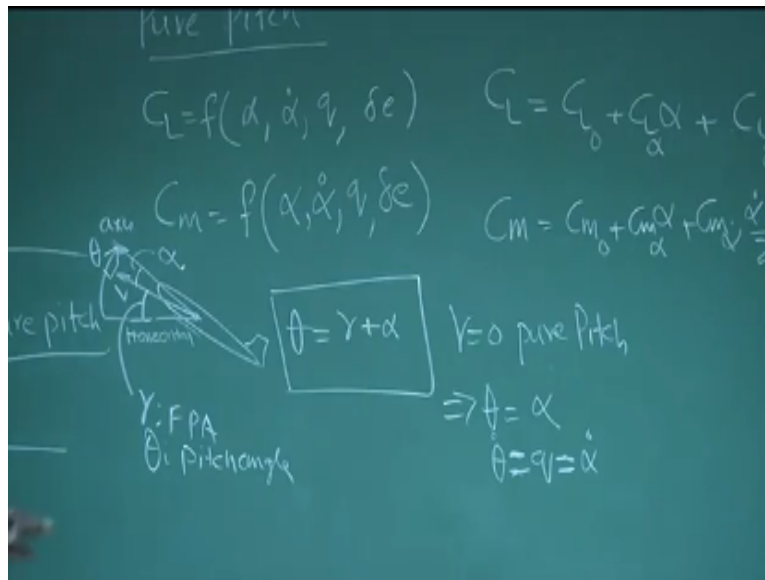 Pure Pitch
C_L = f(α, α̇, q, δe)
C_L = C_L_0 + C_L_α α + C_L
C_m = f(α, α̇, q, δe)
C_m = C_m_0 + C_m_α α + C_m_α̇ α̇
axis
θ
α
V
Horizontal
re pitch
θ = γ + α
γ=0 pure Pitch
⇒ θ = α
θ̇ = q = α̇
γ: FPA
θ: Pitch angle